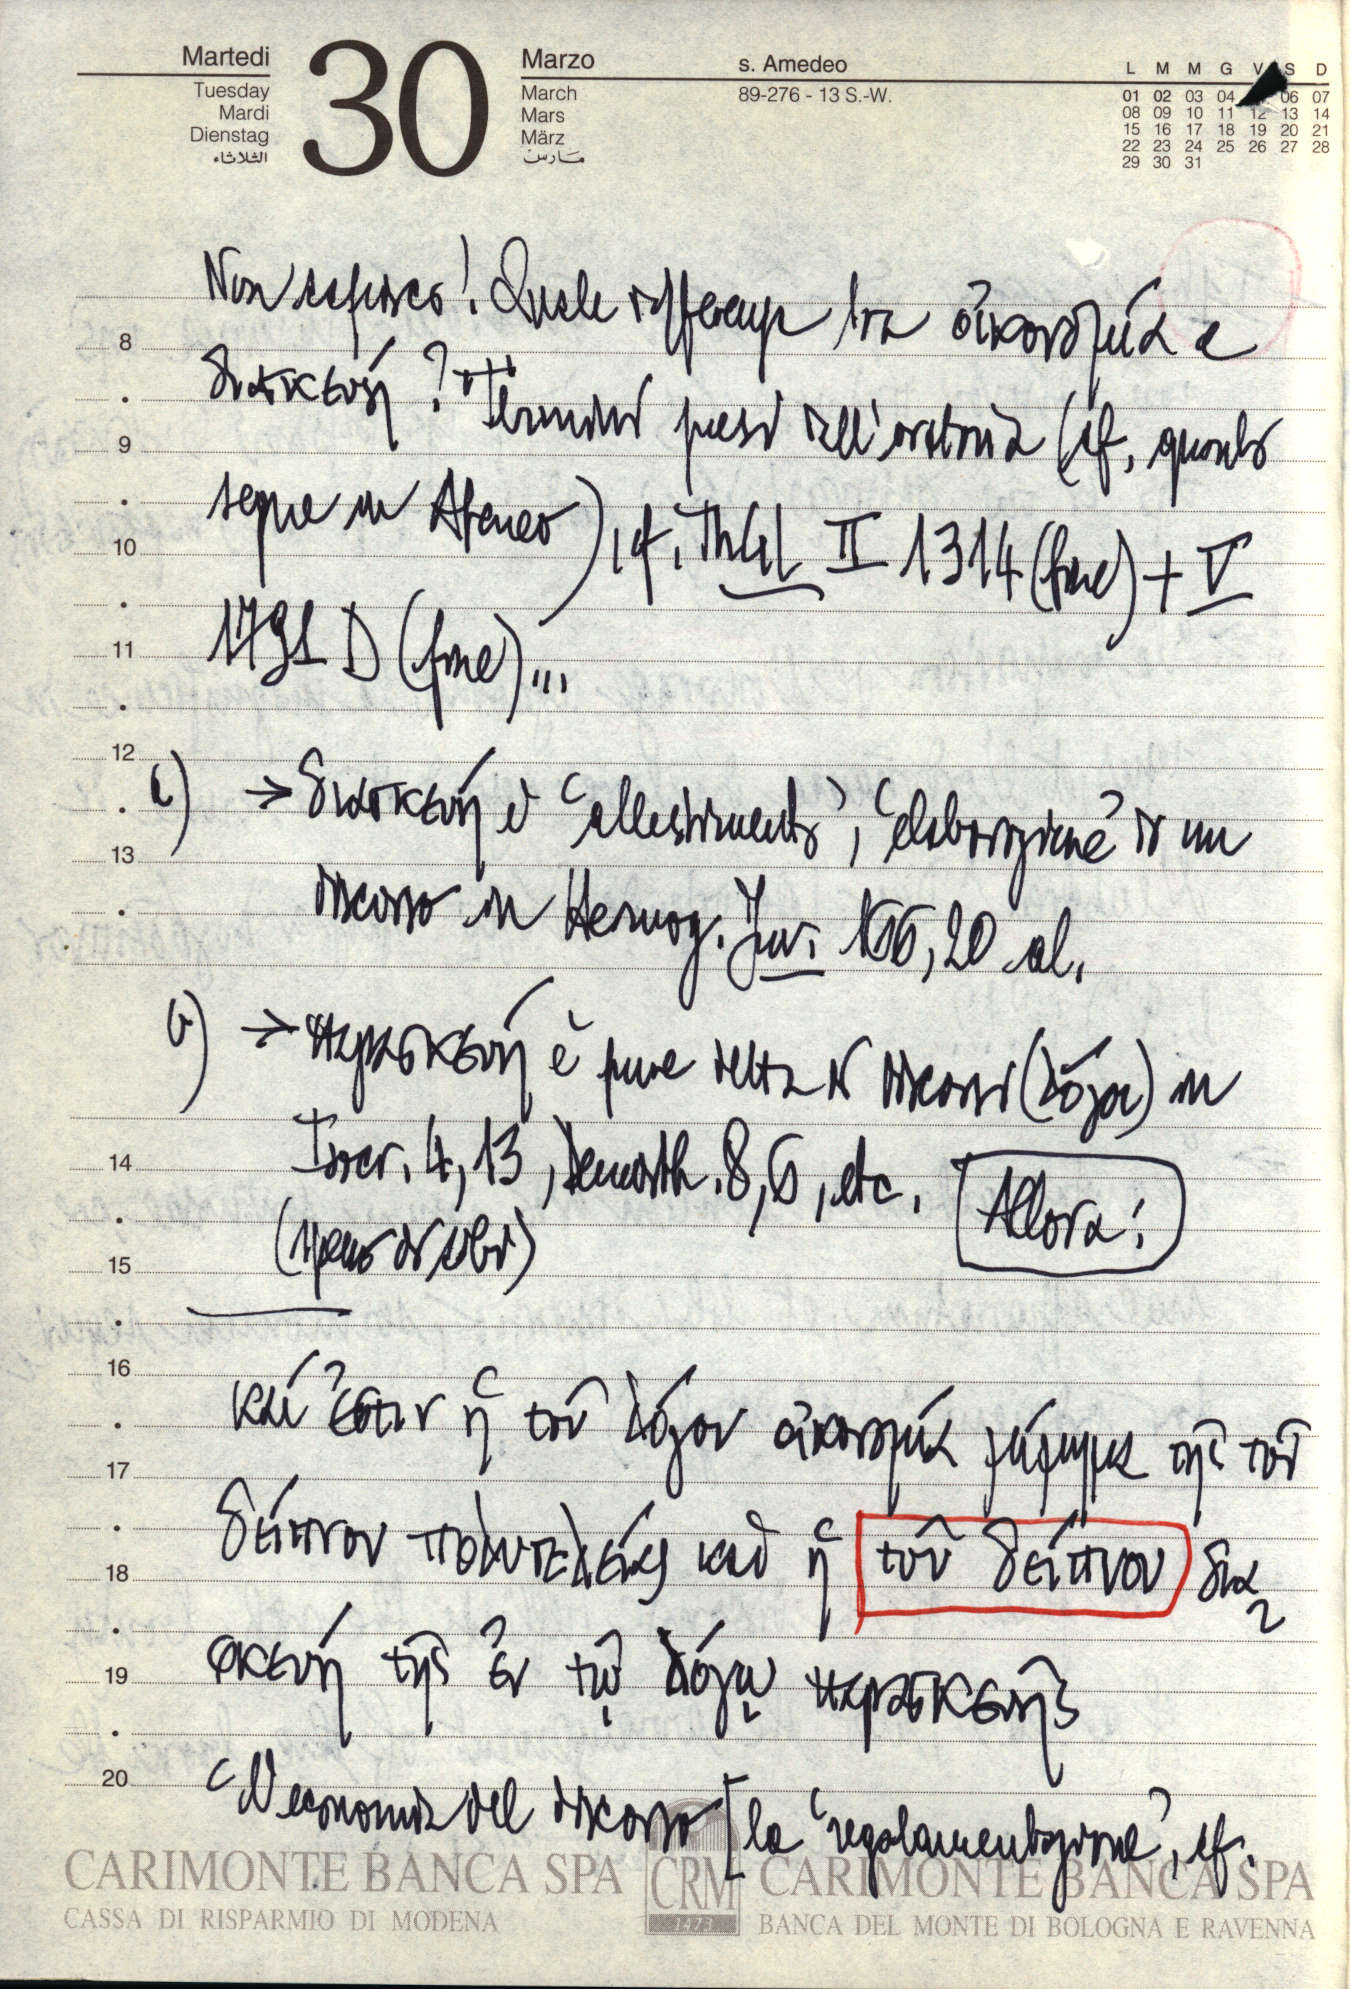 Martedì 30 Marzo s. Amedeo L M M G V S D
Tuesday March 89-276 - 13 S.-W. 01 02 03 04 06 07
Mardi Mars 08 09 10 11 12 13 14
Dienstag März 15 16 17 18 19 20 21
الثلاثاء مَــارسْ 22 23 24 25 26 27 28
29 30 31
Non capisco! Quale differenza tra οἰκονομία e
διασκευή? Termini presi dall'oratoria (cf. quanto
segue in Ateneo), cf. ThGL II 1314 (fine) + V
1791 D (fine)...
a) → διασκευή è 'allestimento', 'elaborazione' di un
discorso in Hermog. Inv. 166, 20 al.
b) → παρασκευή è pure detta di discorsi (λόγοι) in
Isocr. 4, 13, Demosth. 8, 6, etc. Allora:
καί ἐστιν ἡ τοῦ λόγου οἰκονομία μίμημα τῆς τοῦ
δείπνου πολυτελείας καὶ ἡ τοῦ δείπνου δια
σκευὴ τῆς ἐν τῷ λόγῳ παρασκευῆς
'L'economia del discorso [la 'regolamentazione', cf.
8
9
10
11
12
13
14
15
16
17
18
19
20
CARIMONTE BANCA SPA CRM CARIMONTE BANCA SPA
CASSA DI RISPARMIO DI MODENA 1473 BANCA DEL MONTE DI BOLOGNA E RAVENNA